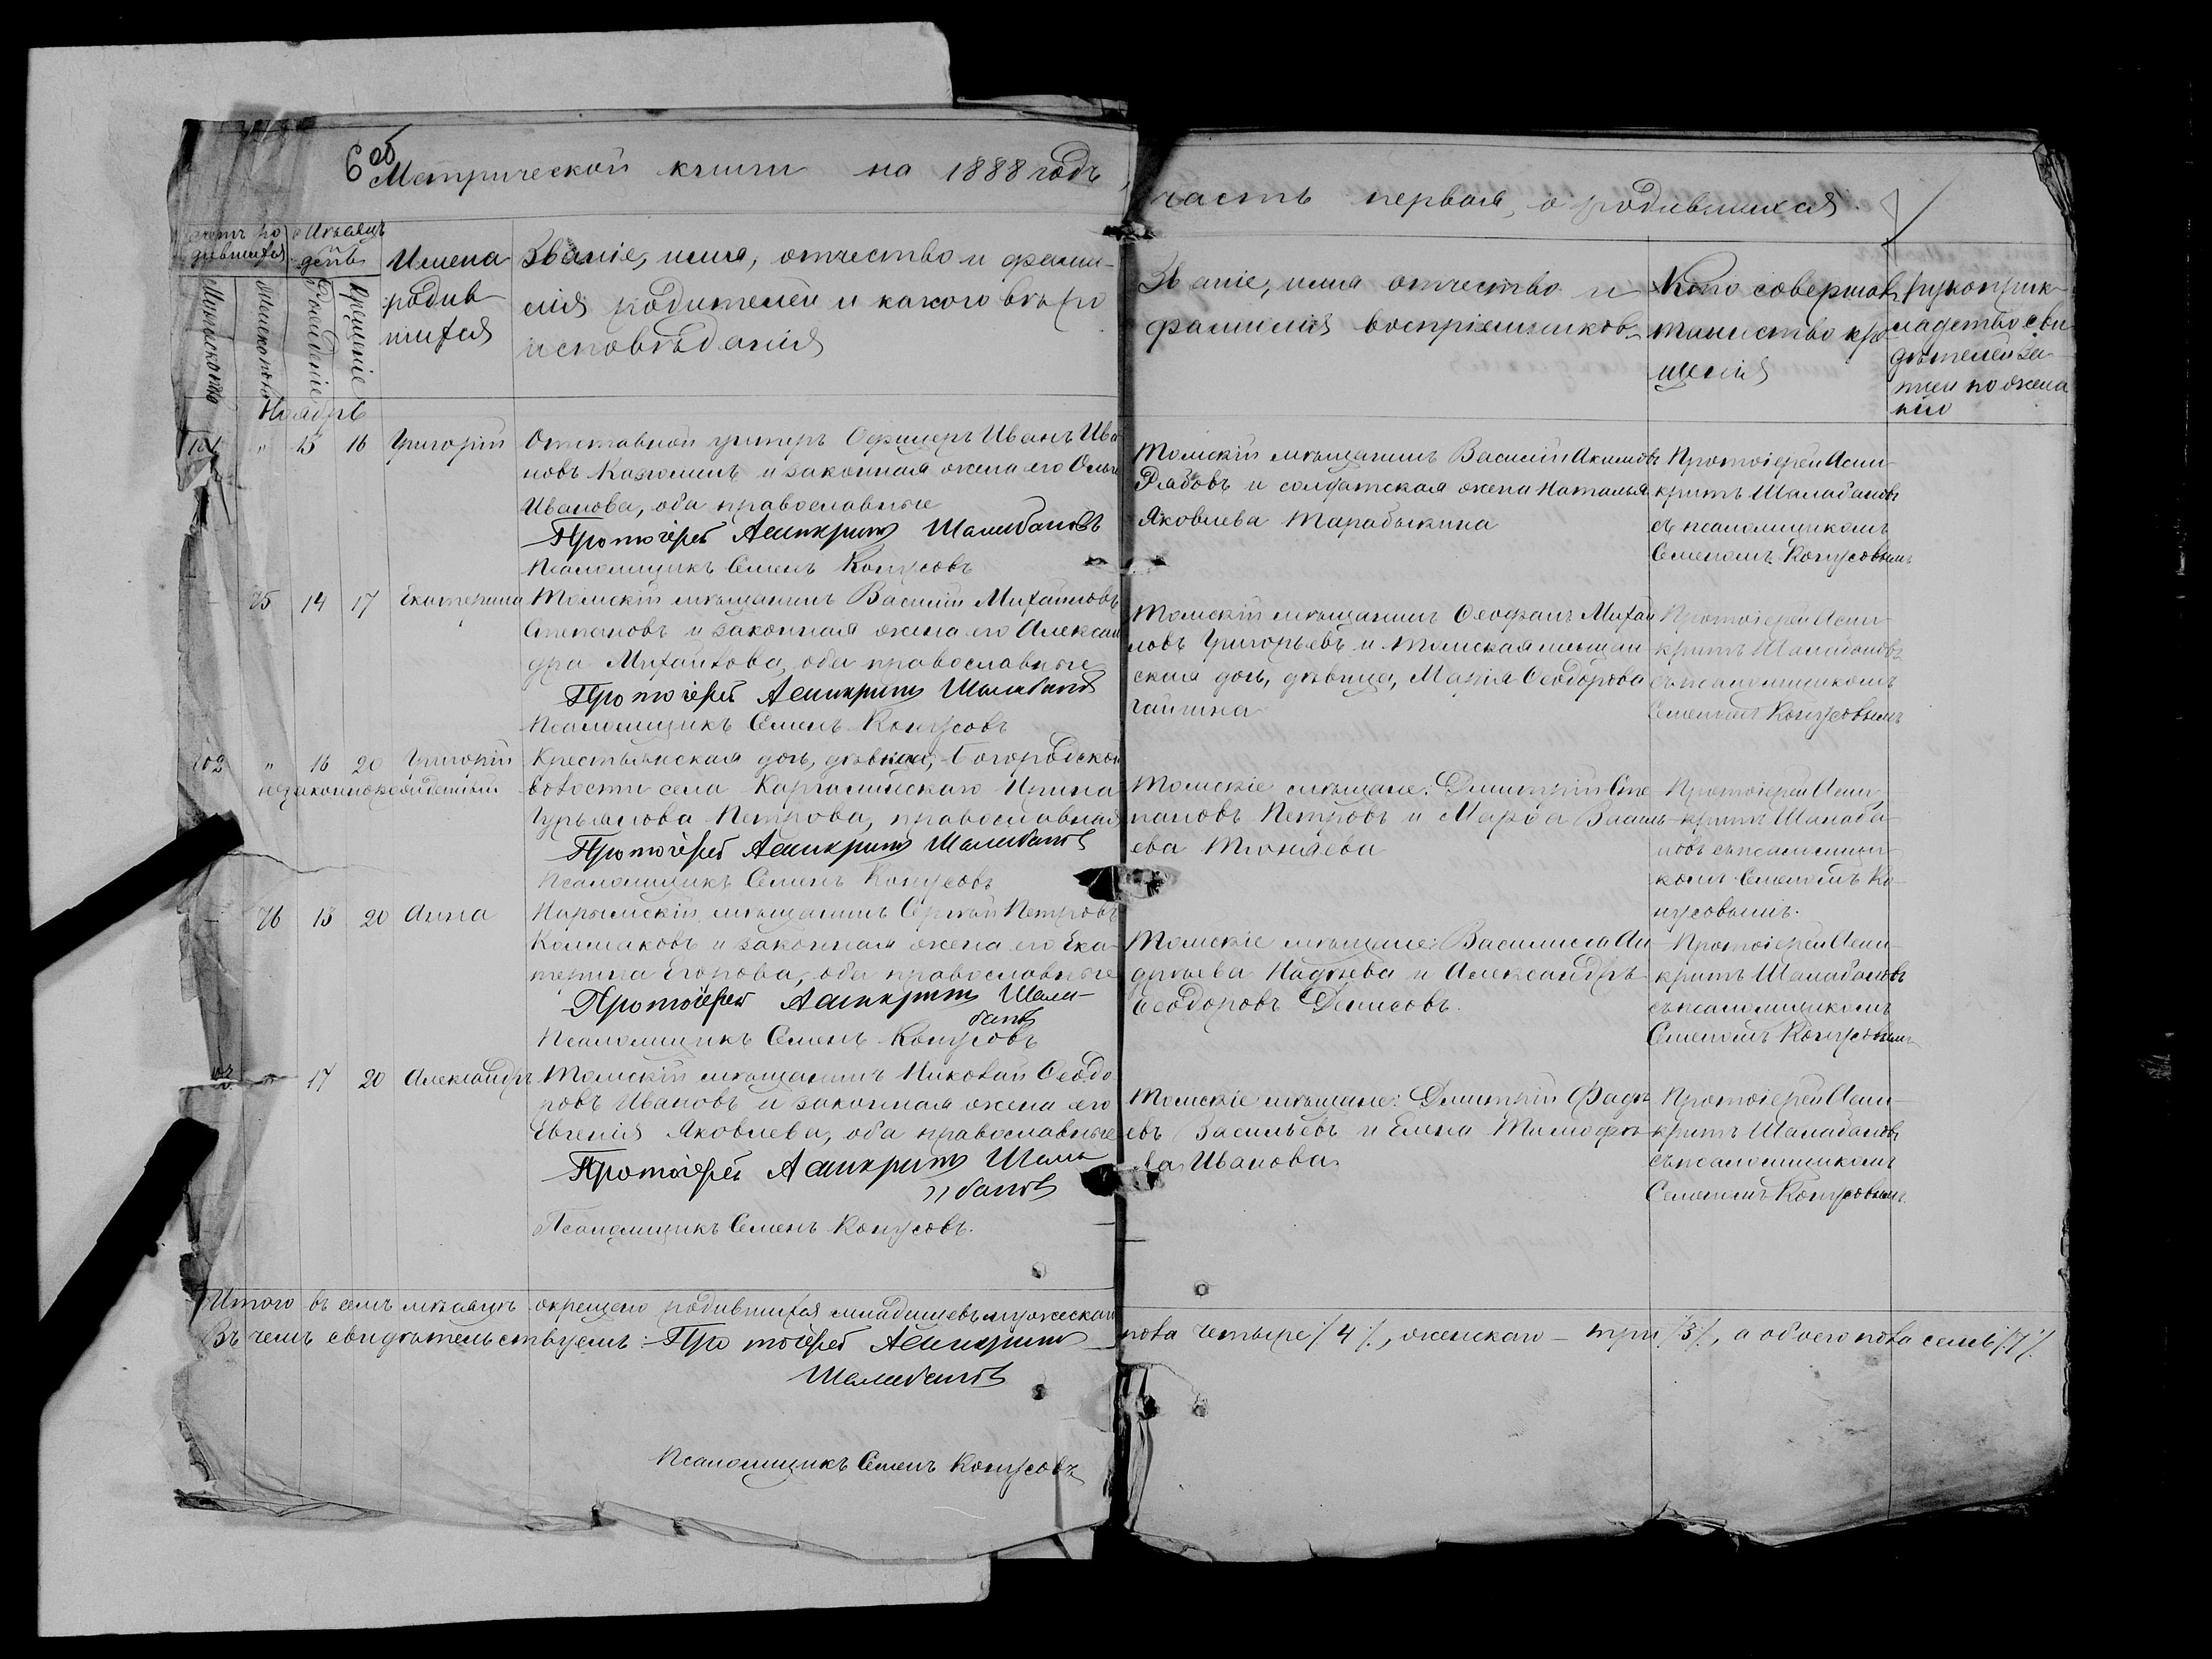 6 об
Метрической книги на 1888 годъ,
часть первая, о родившихся.
Счетъ ро
дившихся
Мѣсяцъ
день
Мужского
Женского
Рожденіе
Крещеніе
Имена
родив
шихся
Званіе, имя, отчество и фами-
лія родителей и какого вѣро
исповѣданія
Званіе, имя отчество и
фамилія воспріемниковъ
Кто совершалъ
таинство кре
щенія
Рукоприк
ладство сви
дѣтелей за
писи по жела
нію
Ноябрь
101 " 15 16 Григорій
Отставной унтеръ Офицеръ Иванъ Ива
новъ и законная жена его Ольга
Иванова, оба православные
Протоіерей Асинкритъ Шалабановъ
Псаломщикъ Семенъ Конусовъ
Томскій мѣщанинъ Василій Акимовъ
Рябовъ и солдатская жена Наталья
Яковлева Тарабыкина
Протоіерей Асин
критъ Шалабановъ
съ псаломщикомъ
Семеномъ Конусовымъ
75 14 17 Екатерина
Томскій мѣщанинъ Василій Михайловъ
Степановъ и законная жена его Алексан
дра Михайлова, оба православные
Протоіерей Асинкритъ Шалабановъ
Псаломщикъ Семенъ Конусовъ
Томскій мѣщанинъ Феофанъ Михай
ловъ Григорьевъ и томская мѣщан
ская дочь, дѣвица, Марія Феодорова
Протоіерей Асин
критъ Шалабановъ
съ псаломщикомъ
Семеномъ Конусовымъ
102 " 16 20 Григорій
незаконнорожденный
Крестьянская дочь, дѣвица, Богородской
волости села Каргалинскаго Ирина
Гурьянова Петрова, православная
Протоіерей Асинкритъ Шалабановъ
Псаломщикъ Семенъ Конусовъ
Томскіе мѣщане: Димитрій Сте
пановъ Петровъ и Марѳа Василь
ева Тюняева
Протоіерей Асин
критъ Шалаба
новъ съ псаломщи
комъ Семеномъ Ко
нусовымъ.
76 13 20 Анна
Нарымскій мѣщанинъ Сергѣй Петровъ
Колмаковъ и законная жена его Ека
терина Егорова, оба православные
Протоіерей Асинкритъ Шала-
бановъ
Псаломщикъ Семенъ Конусовъ
Томскіе мѣщане: Василиса Ан
дреева и Александръ
Феодоровъ Денисовъ.
Протоіерей Асин
критъ Шалабановъ
съ псаломщикомъ
Семеномъ Конусовымъ
103 " 17 20 Александръ
Томскій мѣщанинъ Николай Феодо
ровъ Ивановъ и законная жена его
Евгенія Яковлева, оба православные
Протоіерей Асинкритъ Шала
бановъ
Псаломщикъ Семенъ Конусовъ.
Томскіе мѣщане: Димитрій Фадѣ
евъ Васильевъ и Елена Тимофѣе
ва Иванова.
Протоіерей Асин
критъ Шалабановъ
съ псаломщикомъ
Семеномъ Конусовымъ.
Итого въ семъ мѣсяцѣ окрещено родившихся младенцевъ мужескаго
пола четыре /4/, женскаго – три /3/, а обоего пола семь /7/.
Въ чемъ свидѣтельствуемъ: Протоіерей Асинкритъ
Шалабановъ
Псаломщикъ Семенъ Конусовъ